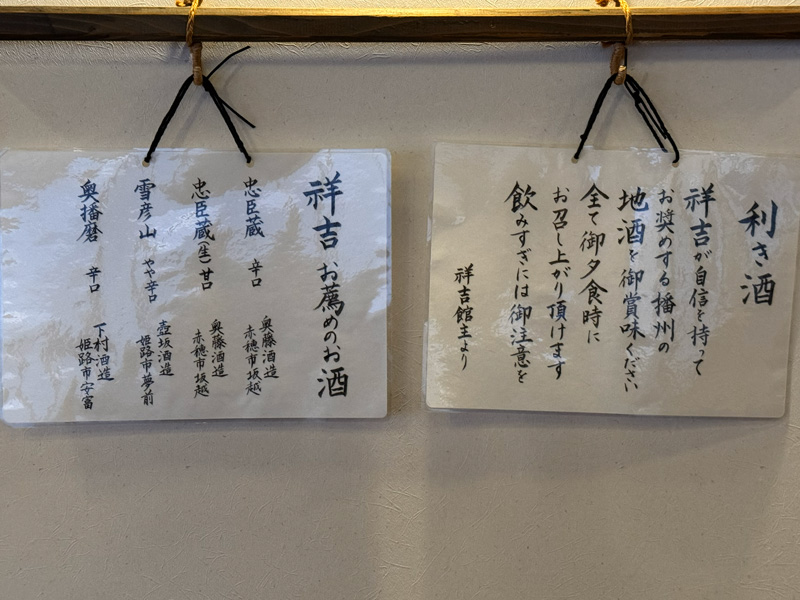 利き酒
祥吉が自信を持って
お奨めする播州の
地酒を御賞味ください
全て御夕食時に
お召し上がり頂けます
飲みすぎには御注意を
祥吉館主より
祥吉お薦めのお酒
忠臣蔵 辛口 奥藤酒造
赤穂市坂越
忠臣蔵(生)甘口 奥藤酒造
赤穂市坂越
雪彦山 やや辛口 壺坂酒造
姫路市夢前
奥播磨 辛口 下村酒造
姫路市安富